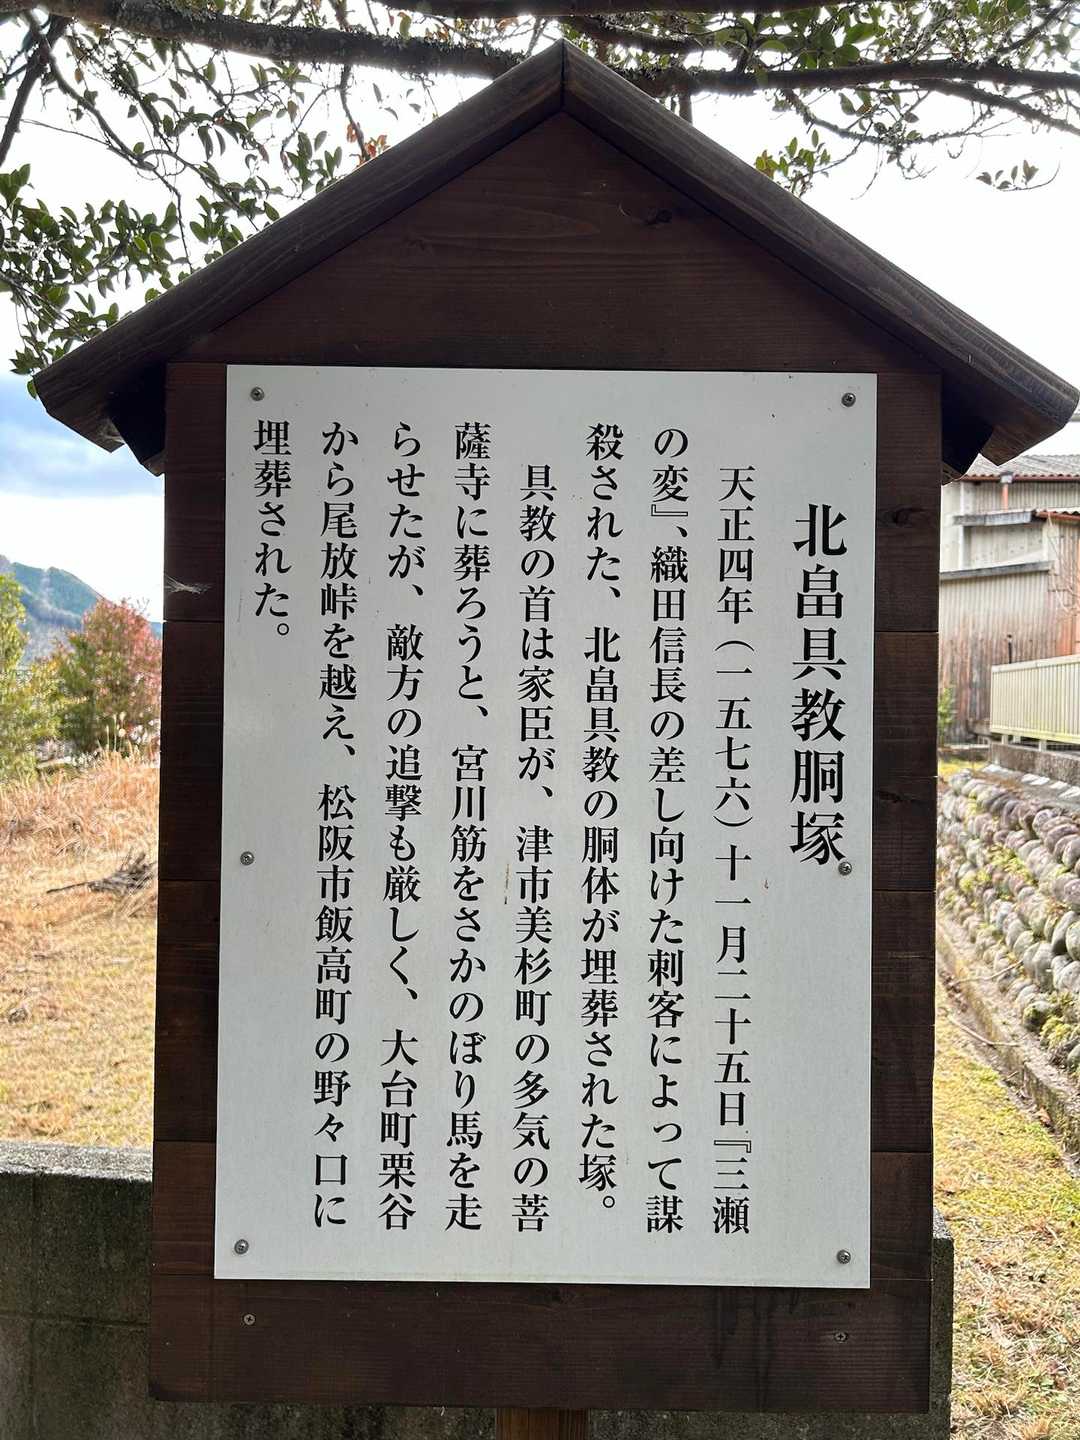 北畠具教胴塚
天正四年（一五七六）十一月二十五日『三瀬
の変』、織田信長の差し向けた刺客によって謀
殺された、北畠具教の胴体が埋葬された塚。
具教の首は家臣が、津市美杉町の多気の菩
薩寺に葬ろうと、宮川筋をさかのぼり馬を走
らせたが、敵方の追撃も厳しく、大台町栗谷
から尾放峠を越え、松阪市飯高町の野々口に
埋葬された。